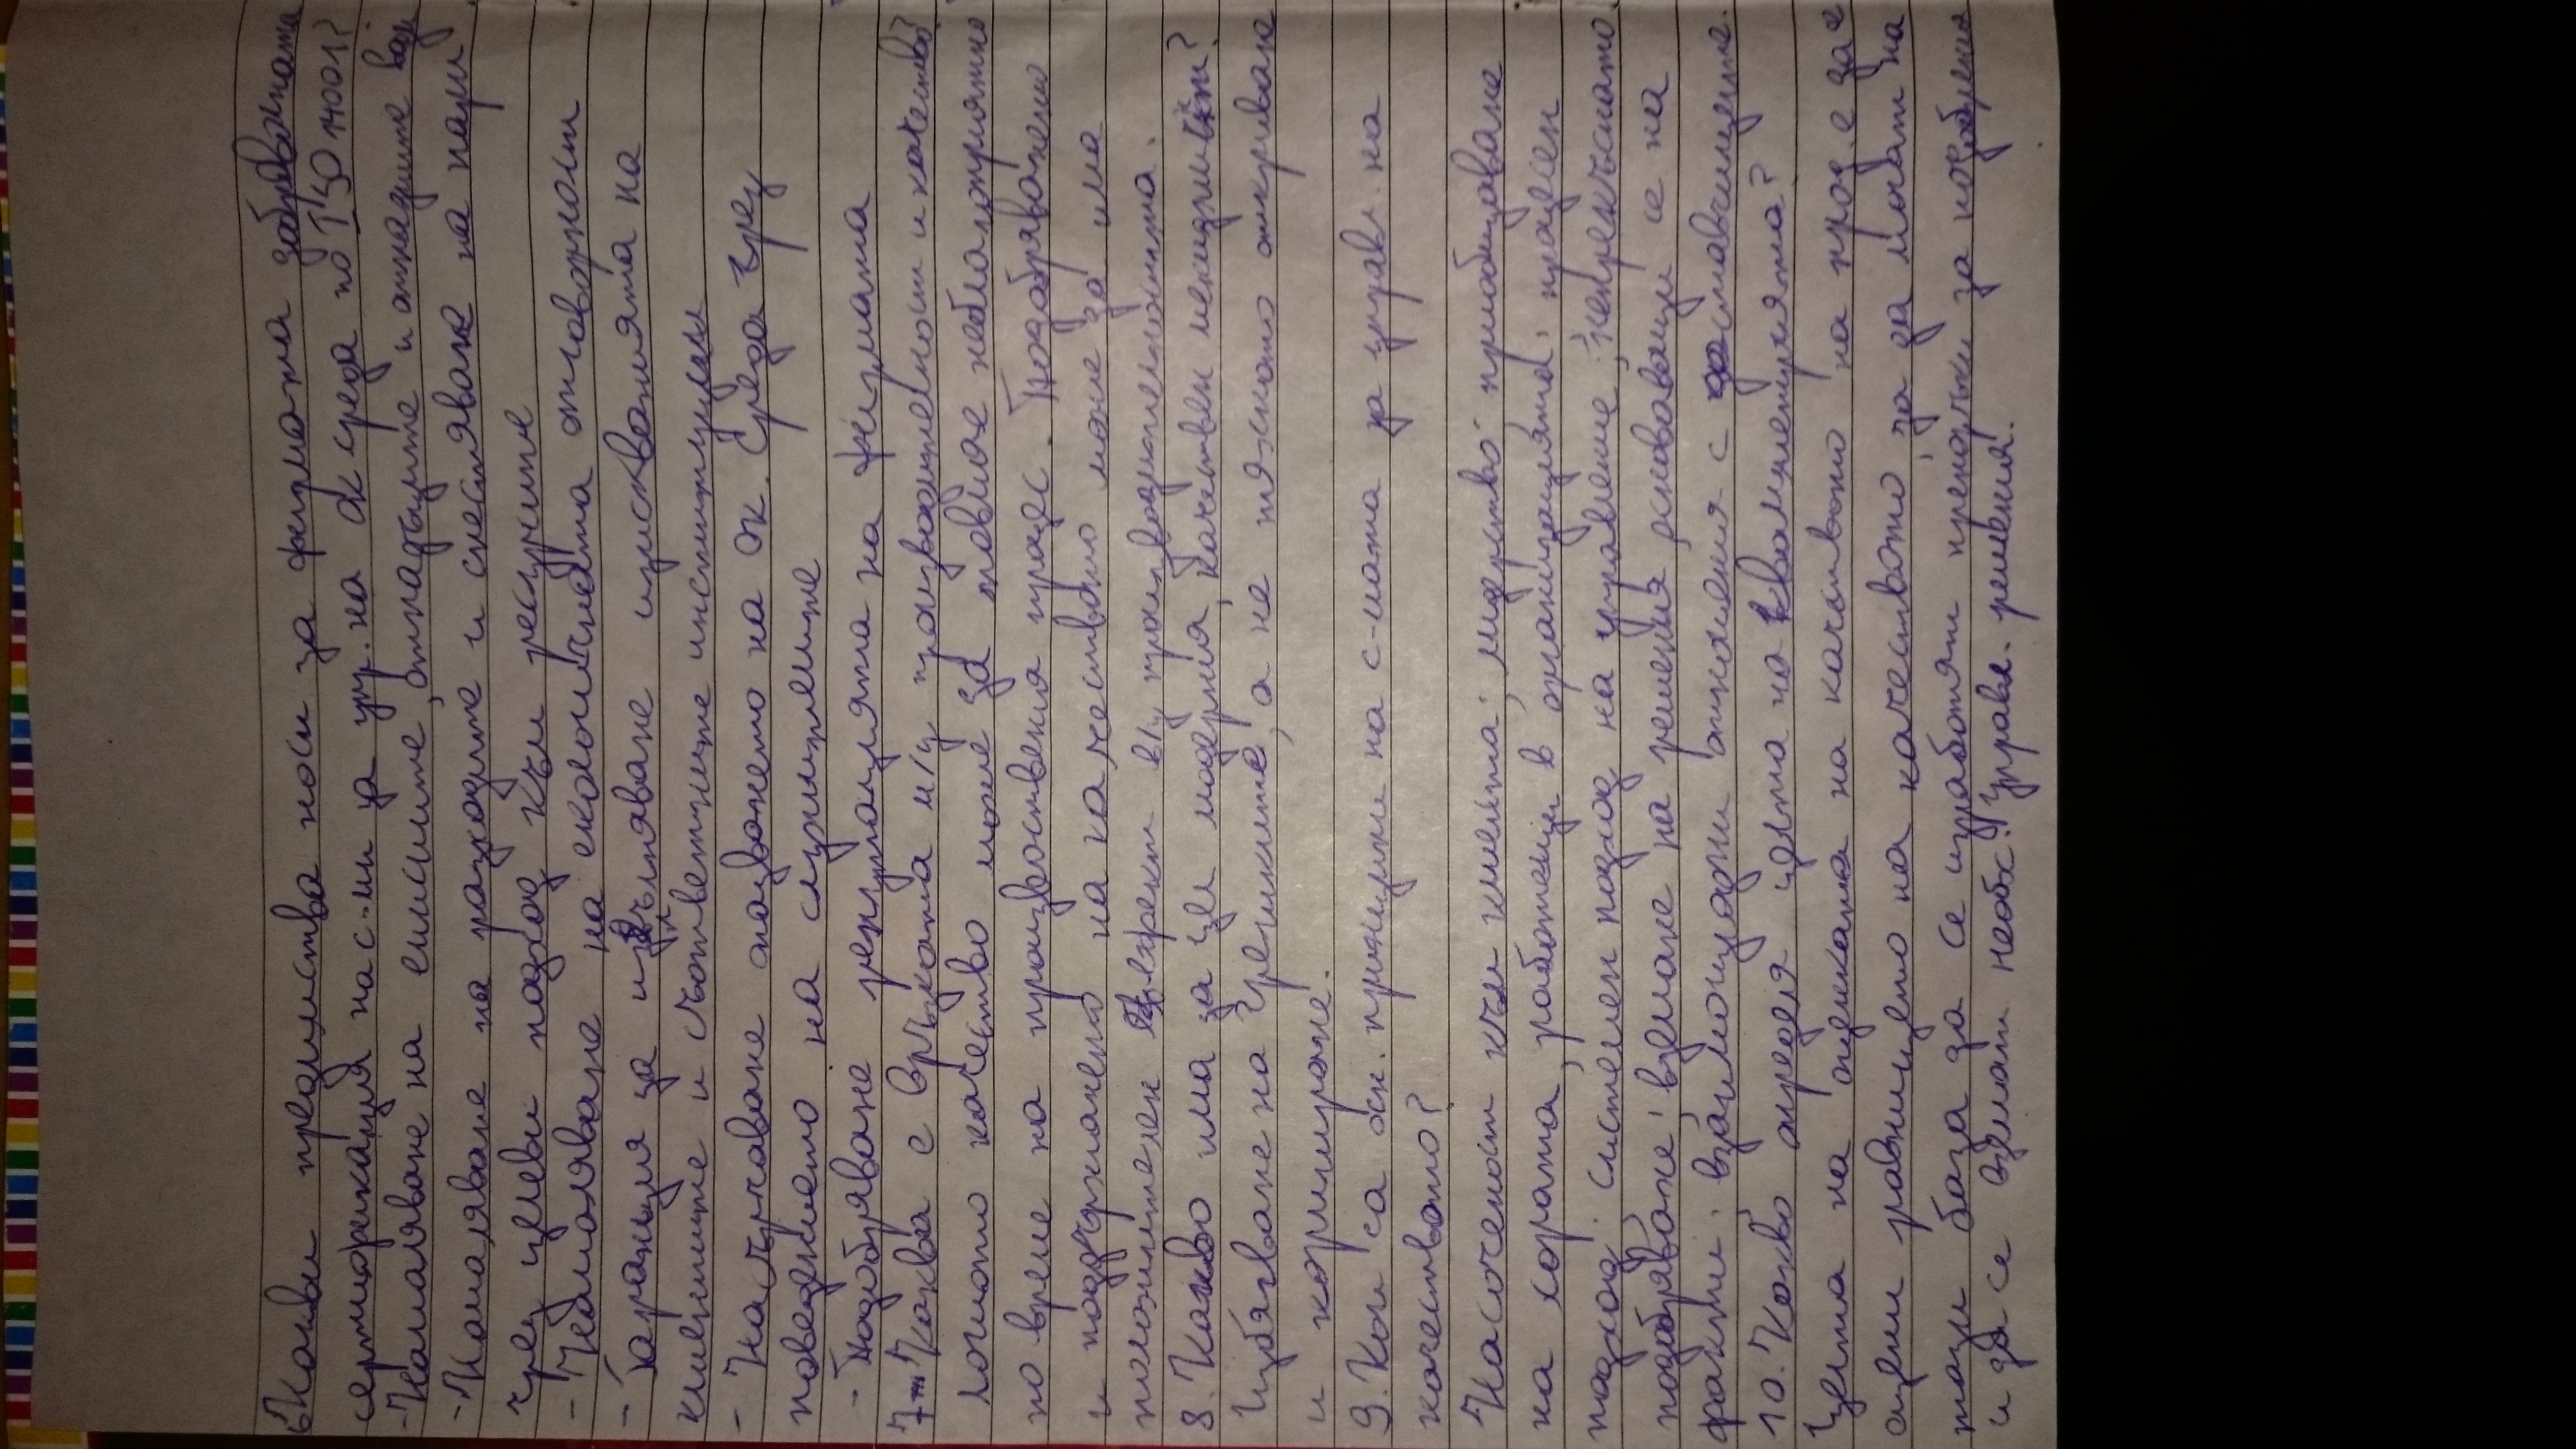 6 Какви предимства носи за фирмата доброволната
сертификация на с-ми за упр. на ок среда по ISO 14001?
- Намаляване на емисиите, отпадъците и отпадните води
- Намаляване на разходите и спестяване на пари
чрез целеви подход към ресурсите
- Намаляване на екологичната отговорност
- Гаранция за изпълняване изискванията на
клиентите и съответните институции
- Насърчаване опазването на ок. среда чрез
поведението на служителите
- Подобряване репутацията на фирмата
7. Каква е връзката м/у производителност и качество?
Лошото качество може да повлияе неблагоприятно
по време на производствения процес. Подобряването
и поддържането на качеството може да има
положителен ефект в/у производителността.
8. Какво има за цел модерния, качествен мениджмънт?
Избягване на грешките, а не тяхното откриване
и коригиране.
9. Кои са осн. принципи на с-мата за управл. на
качеството?
Насоченост към клиента; лидерство; приобщаване
на хората, работещи в организацията; процесен
подход; системен подход на управление; непрекъснато
подобряване; вземане на решения, основаващи се на
факти; взаимоизгодни отношения с доставчиците.
10. Какво определя целта на квалиметрията?
Целта на оценката на качеството на прод. е да се
оцени равнището на качеството, за да могат на
тази база да се изработят препоръки за подобрения
и да се вземат необх. управл. решения.